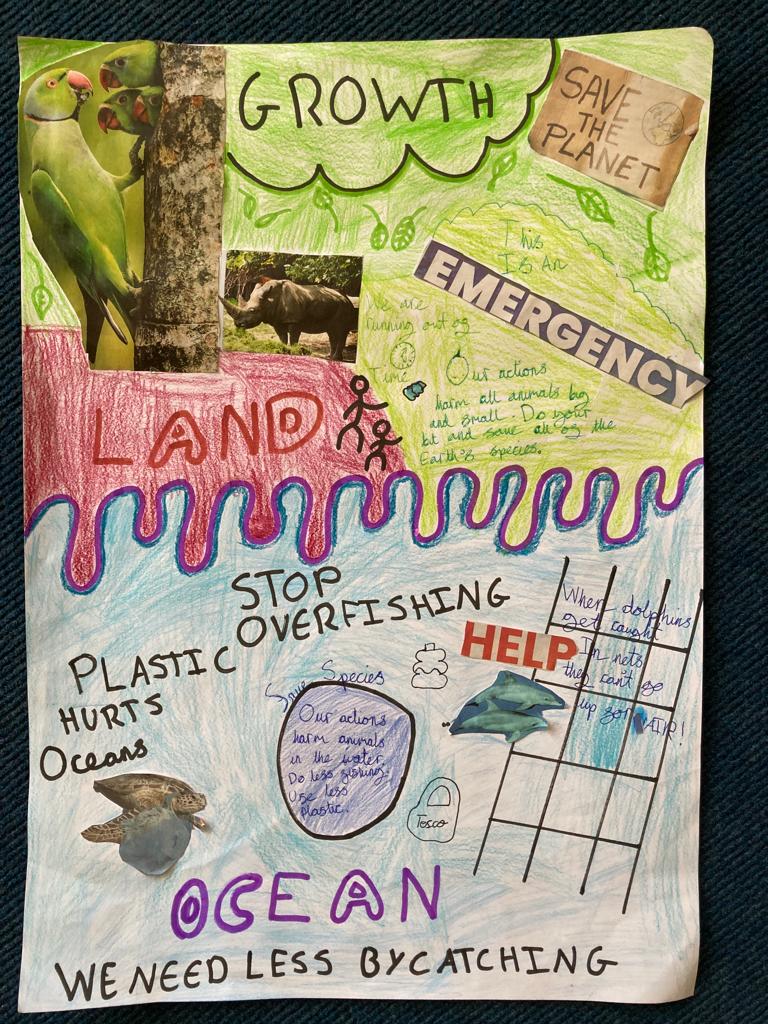 GROWTH
SAVE
THE
PLANET
This
Is An
EMERGENCY
We are
running out of
Time
Our actions
harm all animals big
and small. Do your
bit and save all of the
Earth's species.
LAND
STOP
OVERFISHING
PLASTIC
HURTS
Oceans
HELP
When dolphins
get caught
In nets
they can't go
up for AIR!
Save Species
Our actions
harm animals
in the water.
Do less fishing.
Use less
plastic.
Tesco
OCEAN
WE NEED LESS BYCATCHING